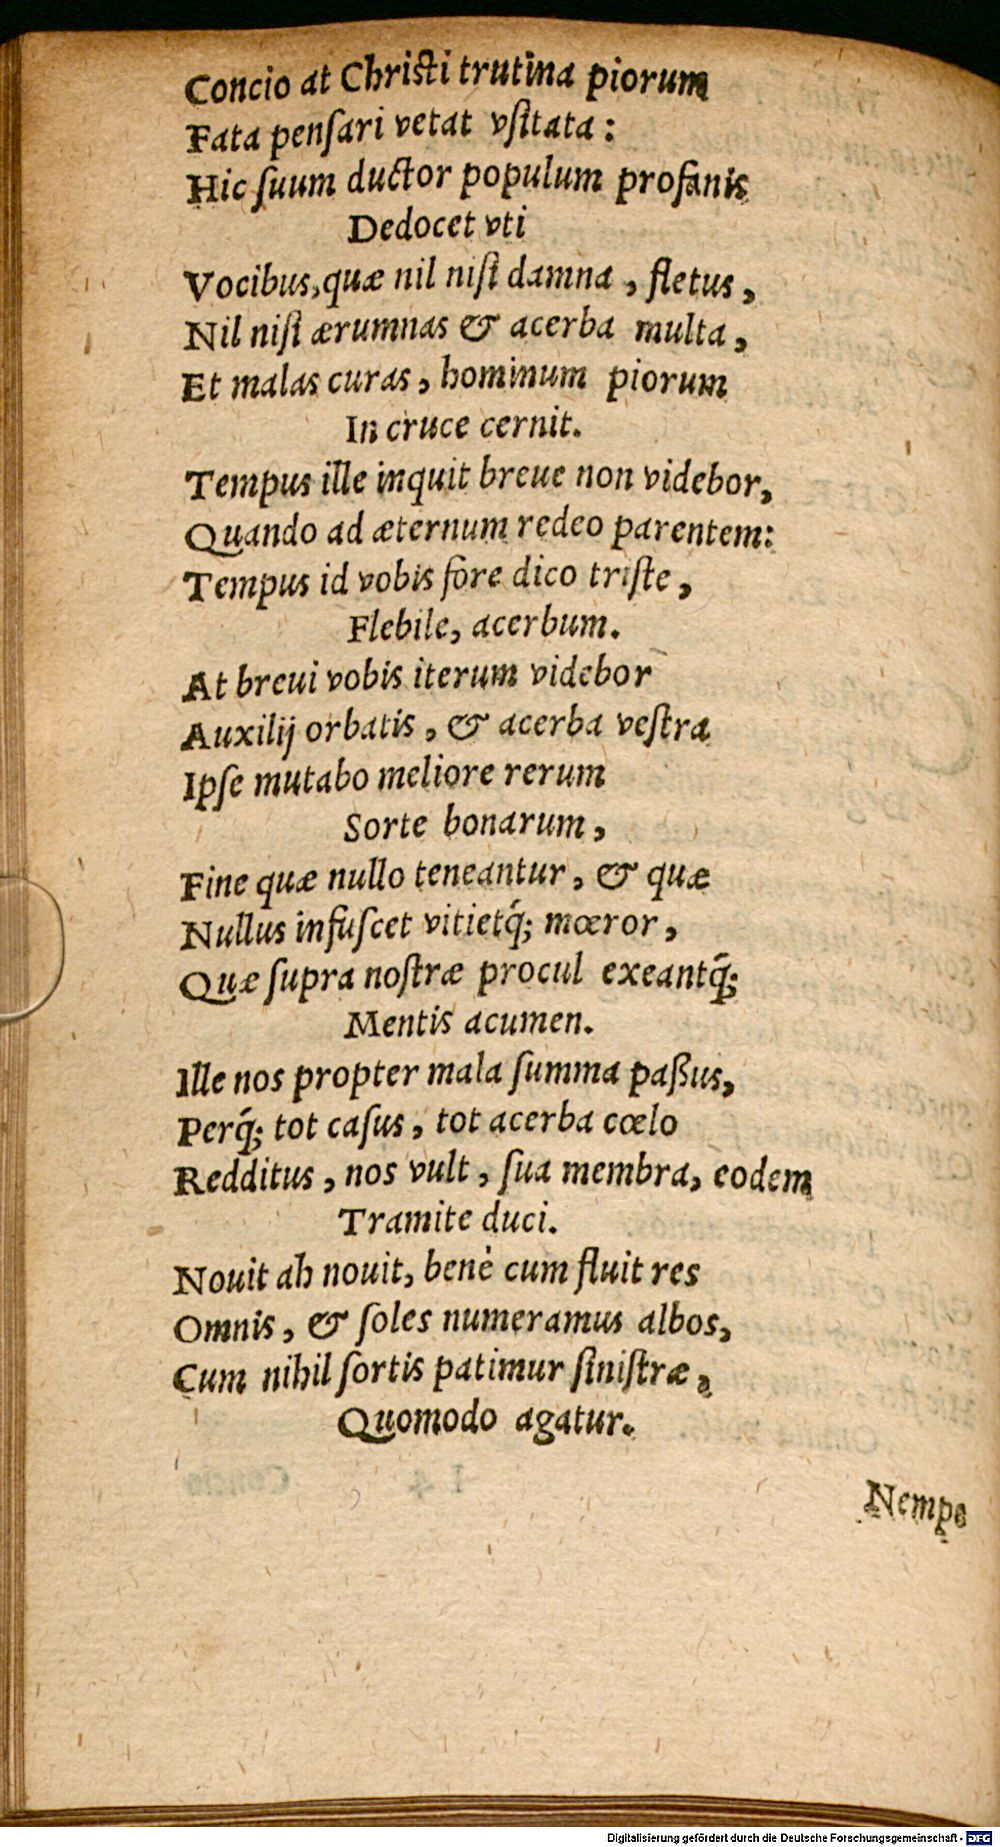 Concio at Christi trutina piorum
Fata penſari vetat vſitata :
Hic ſuum ductor populum profanis
Dedocet vti
Vocibus, quæ nil niſi damna , fletus ,
Nil niſi ærumnas & acerba multa ,
Et malas curas , hominum piorum
In cruce cernit.
Tempus ille inquit breue non videbor,
Quando ad æternum redeo parentem:
Tempus id vobis fore dico triſte ,
Flebile, acerbum.
At breui vobis iterum videbor
Auxilij orbatis , & acerba veſtra
Ipſe mutabo meliore rerum
Sorte bonarum ,
Fine quæ nullo teneantur , & quæ
Nullus infuſcet vitietq́; mœror ,
Quæ ſupra noſtræ procul exeantq́;
Mentis acumen.
Ille nos propter mala ſumma paßus,
Perq́; tot caſus , tot acerba cœlo
Redditus , nos vult , ſua membra, eodem
Tramite duci.
Nouit ah nouit, benè cum fluit res
Omnis , & ſoles numeramus albos,
Cum nihil ſortis patimur ſiniſtræ ,
Quomodo agatur.
Nempe
Digitalisierung gefördert durch die Deutsche Forschungsgemeinschaft - DFG